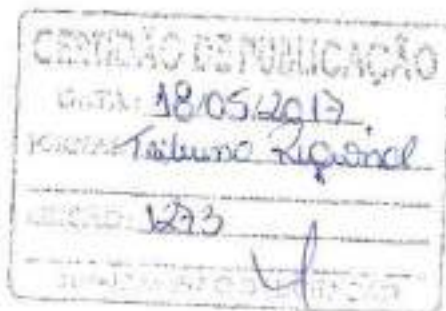 CERTIDÃO DE PUBLICAÇÃO
DATA: 18/05/2017
JORNAL: Tribuna Regional
EDIÇÃO: 1273